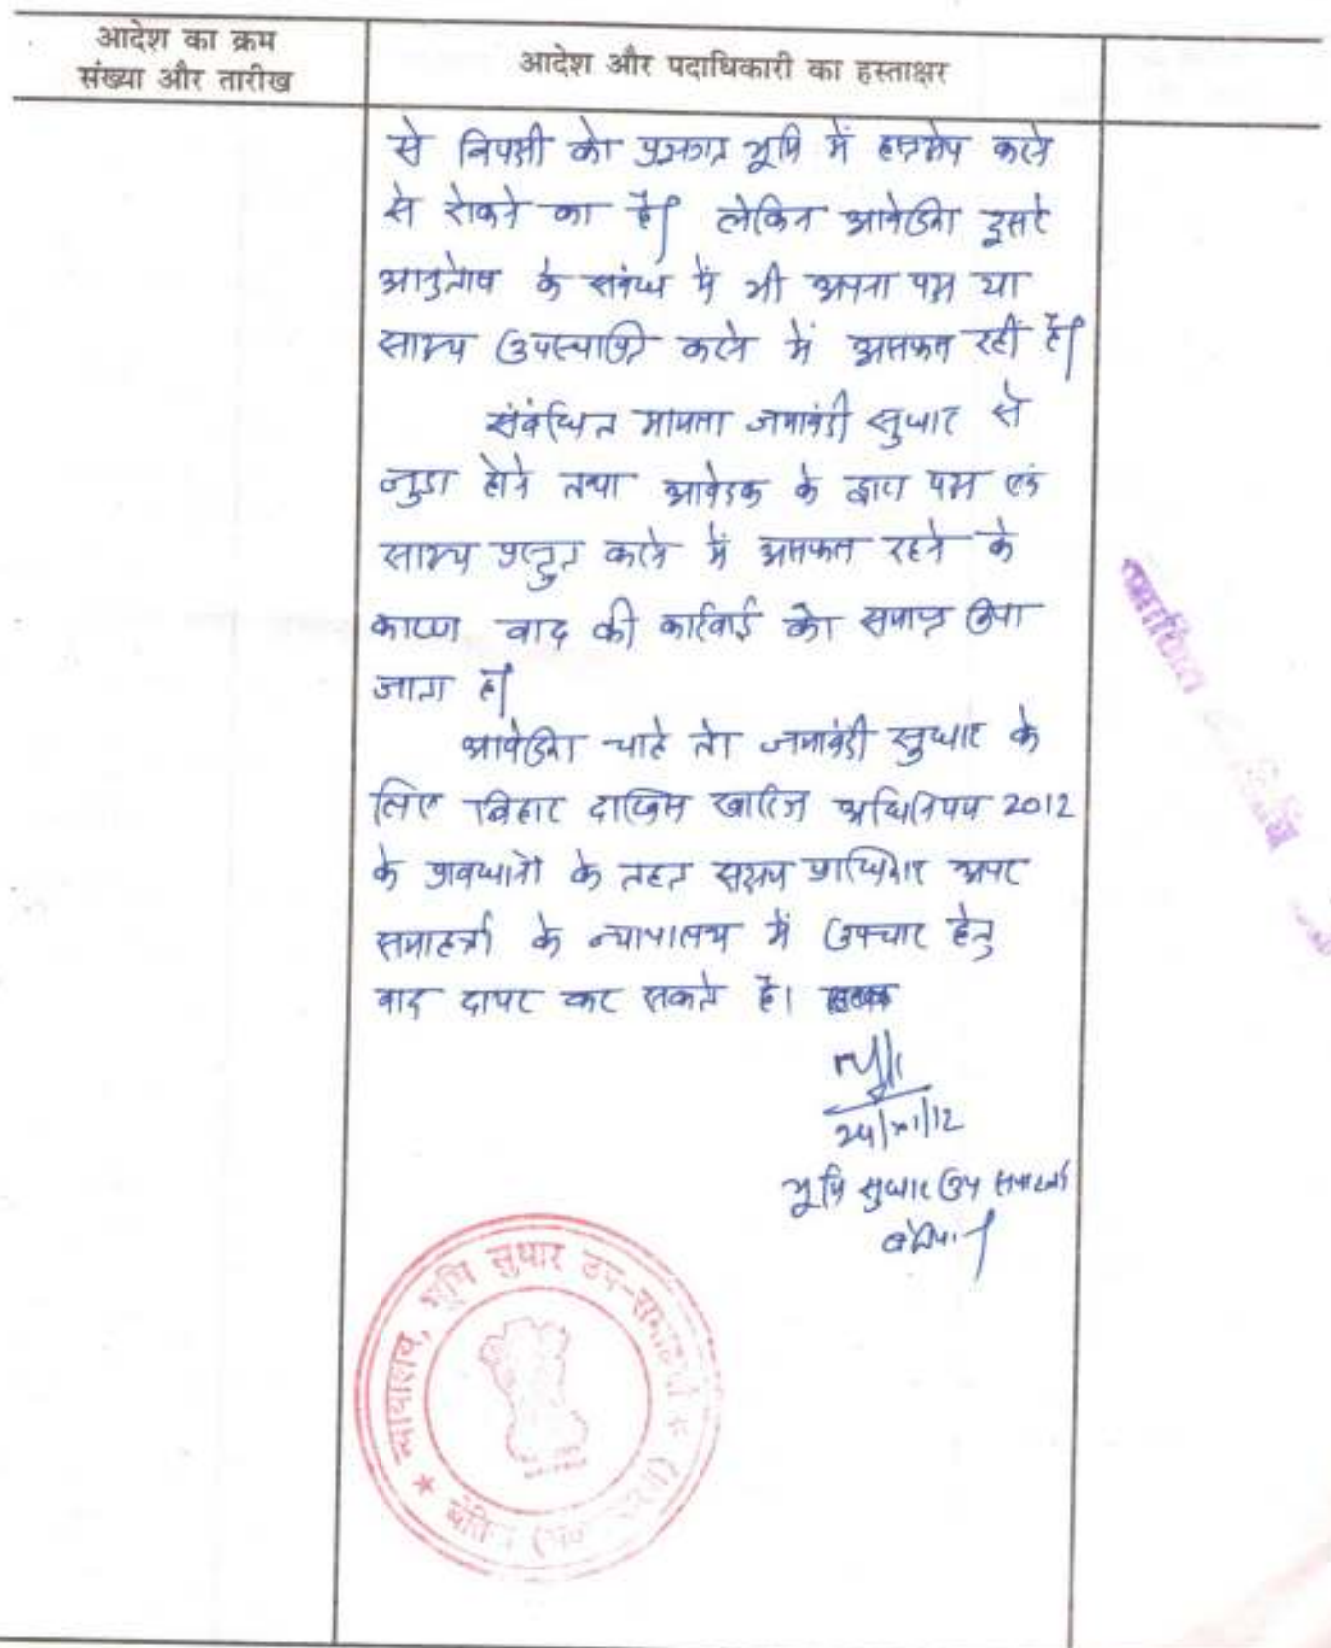 आदेश का क्रम
संख्या और तारीख
आदेश और पदाधिकारी का हस्ताक्षर
से विपक्षी को प्रश्नगत भूमि में हस्तक्षेप करने
से रोकने का है। लेकिन आवेदिका दूसरे
अनुतोष के संबंध में भी अपना पक्ष या
साक्ष्य उपस्थापित करने में असफल रहीं है।
संबंधित मामला जमाबंदी सुधार से
जुड़ा होने तथा आवेदक के द्वारा पक्ष एवं
साक्ष्य प्रस्तुत करने में असफल रहने के
कारण वाद की कार्रवाई को समाप्त किया
जाता है।
आवेदिका चाहे तो जमाबंदी सुधार के
लिए बिहार दाखिल खारिज अधिनियम 2012
के प्रावधानों के तहत सक्षम प्राधिकार अपर
समाहर्त्ता के न्यायालय में उपचार हेतु
वाद दायर कर सकते है।
भूमि सुधार उप समाहर्ता
बेतिया।
न्यायालय, भूमि सुधार उप-समाहर्ता
बेतिया